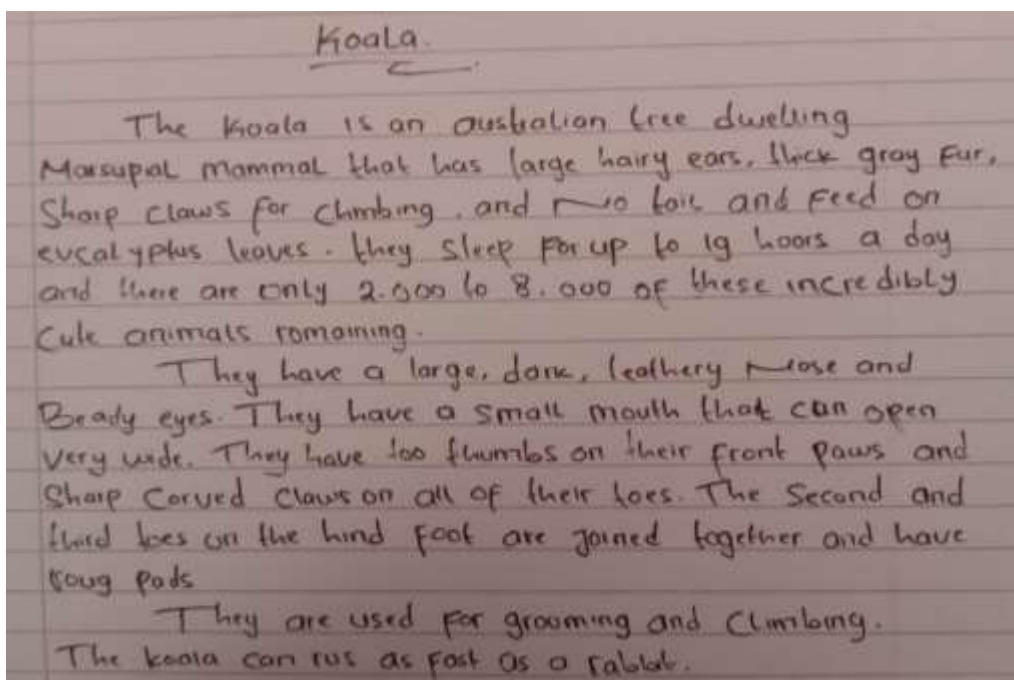 Koala.
The Koala is an australian tree dwelling
Marsupal mammal that has large hairy ears, thick gray Fur,
Sharp claws for climbing, and No tail and Feed on
eucalyptus leaves. they sleep for up to 19 hoors a day
and there are only 2.000 to 8.000 of these incredibly
Cute animals romaining.
They have a large, dark, leathery Nose and
Beady eyes. They have a small mouth that can open
very wide. They have too thumbs on their front paws and
Sharp Corved Claws on all of their toes. The Second and
third toes on the hind foot are joined together and have
roug pads
They are used for grooming and Climbing.
The koala can rus as fast as a rabbit.